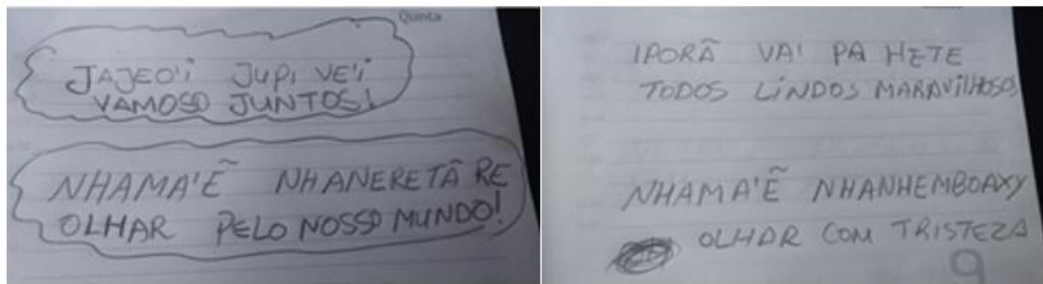 Quinta
JAJEO'I JUPI VE'I
VAMOSO JUNTOS!
NHAMA'Ẽ NHANERETÃ RE
OLHAR PELO NOSSO MUNDO!
IPORÃ VAI PA HETE
TODOS LINDOS MARAVILHOSOS
NHAMA'Ẽ NHANHEMBOAXY
OLHAR COM TRISTEZA
9